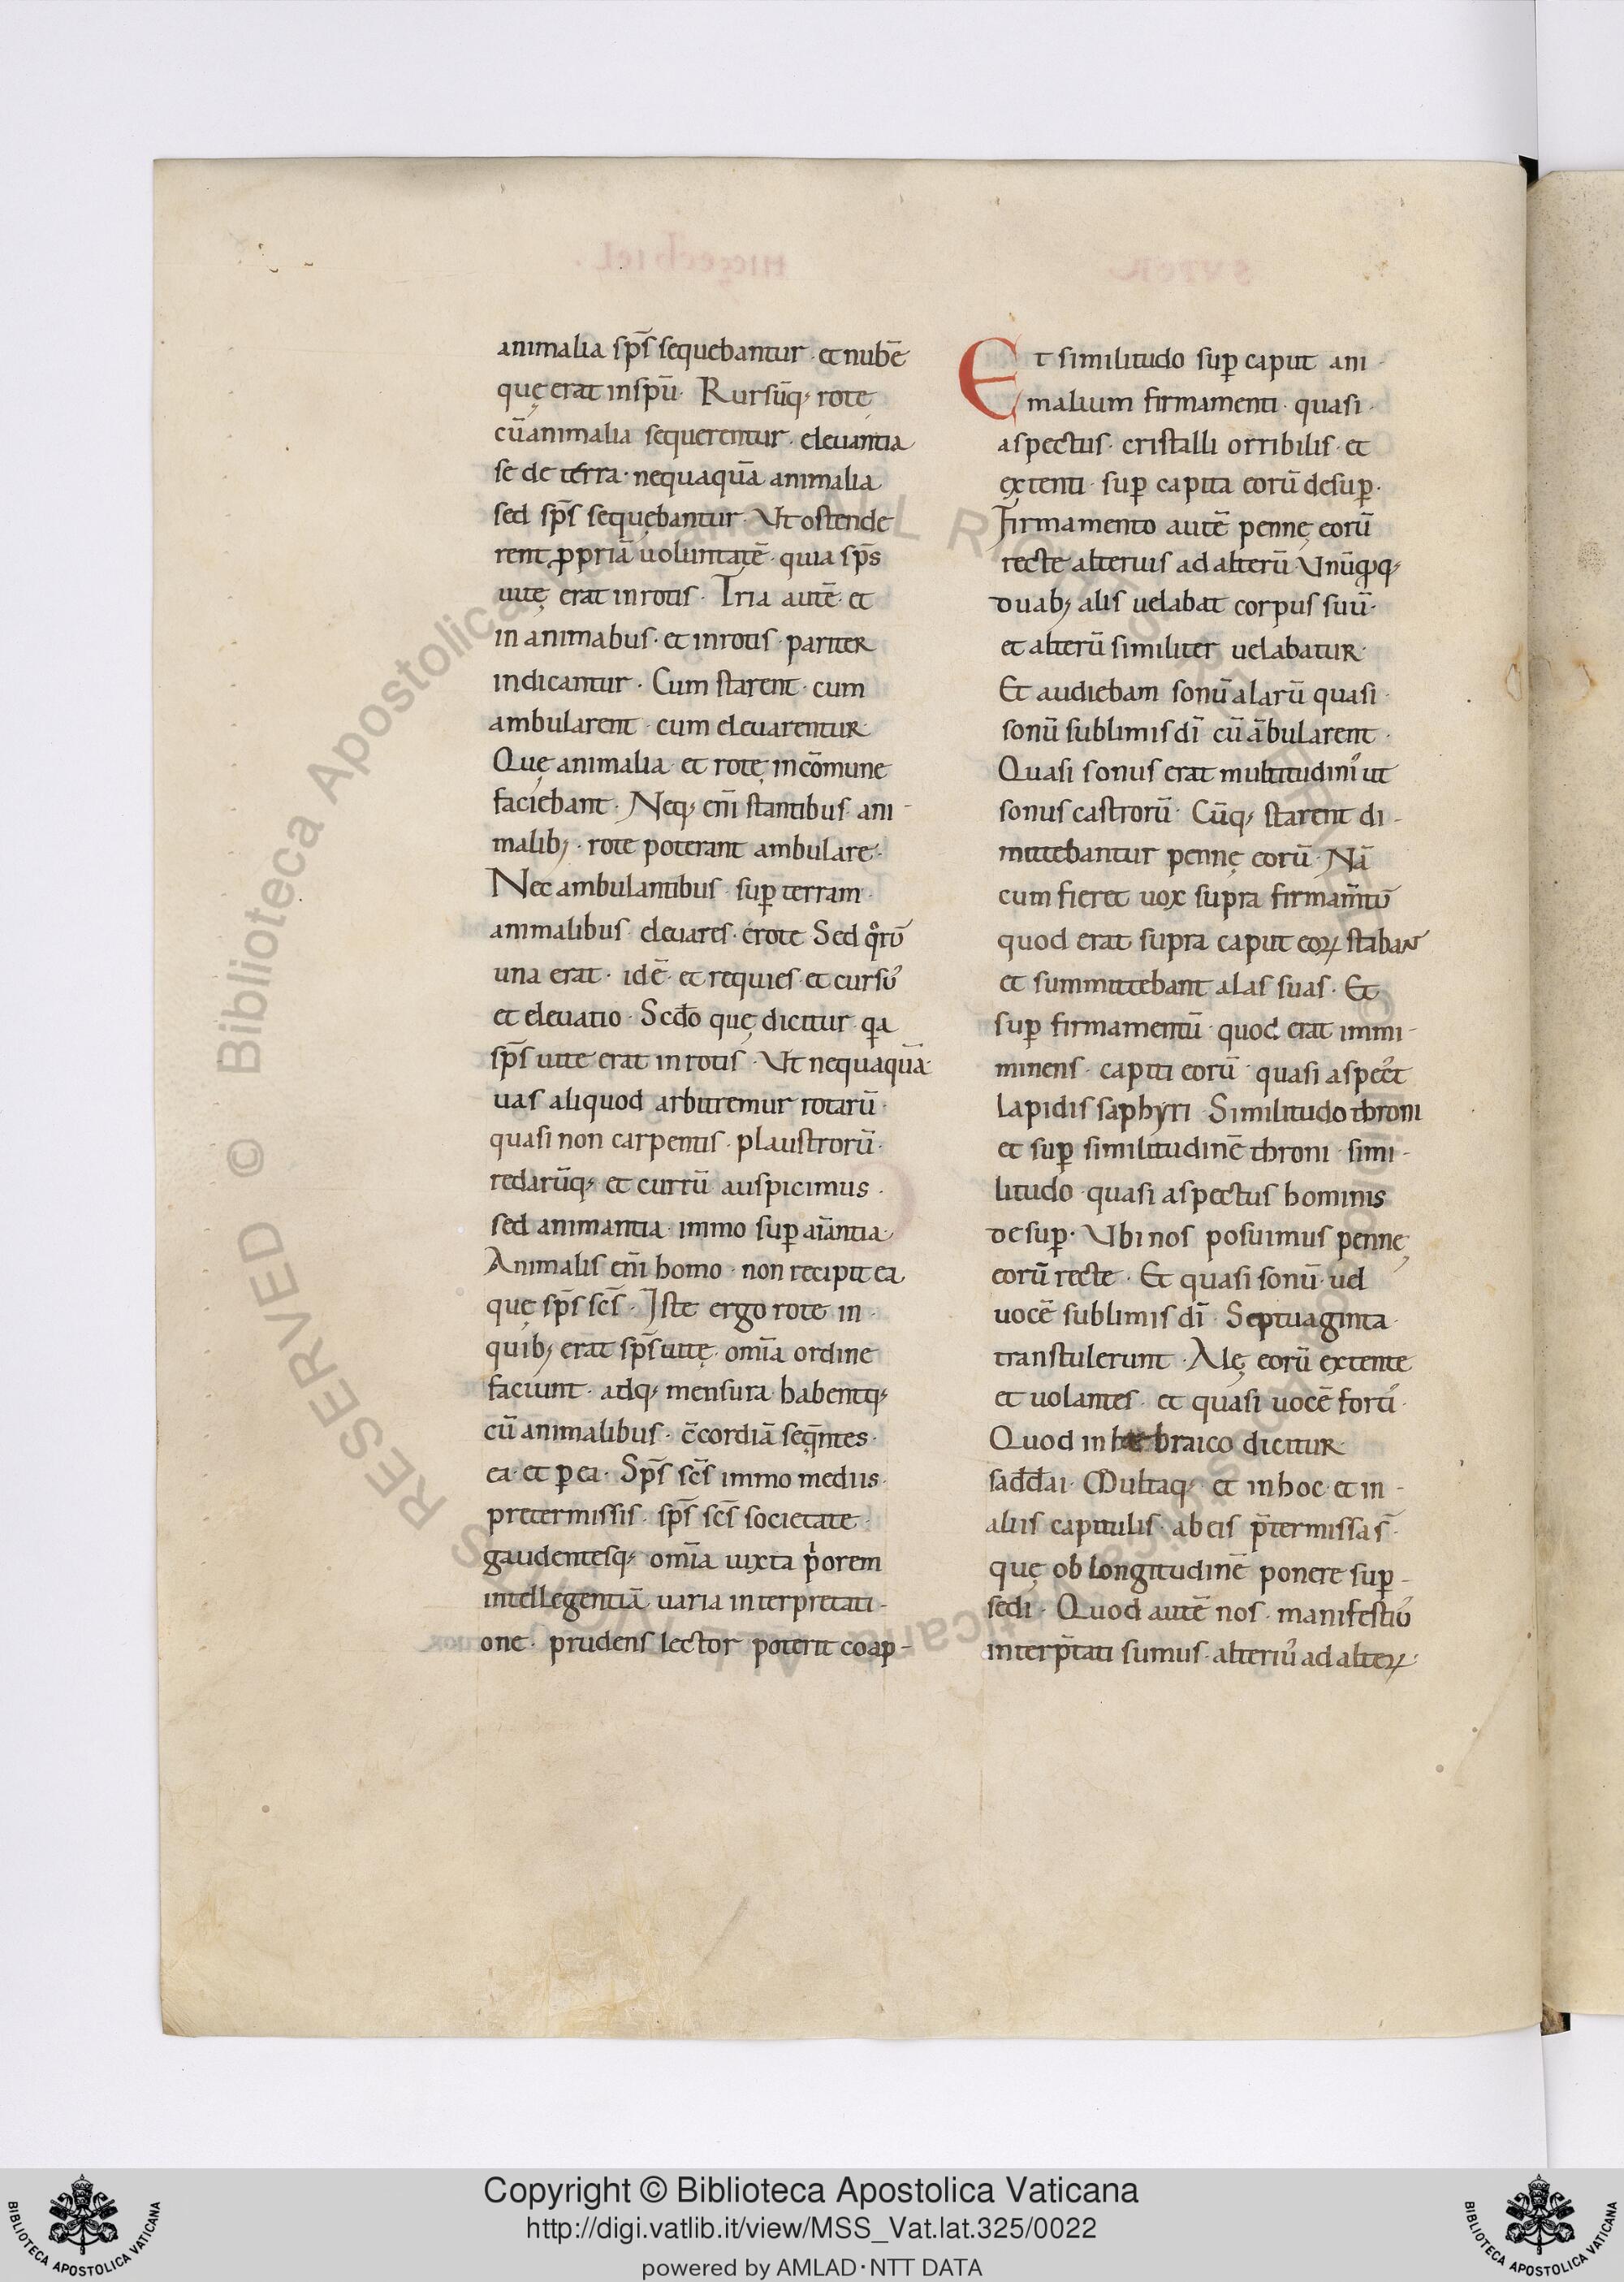 animalia sp̄s sequebantur · et nubē
quę erat in sp̄u · Rursūq; rote
cū animalia sequerentur · eleuantia
se de terra · nequaquā animalia
sed sp̄s sequębantur · Vt ostende
rent ꝓpriā uoluntatē · quia sp̄s
uitę erat in rotis · Tria autē et
in animabus · et in rotis · pariter
indicantur · Cum starent · cum
ambularent · cum eleuarentur
Quę animalia · et rotę in cōmune
faciebant · Neq; enī stantibus ani-
malib; · rote poterant ambulare ·
Nec ambulantibus · sup̄ terram ·
animalibus eleuares · erote Sed qͦrū
una erat · idē · et requies · et cursꝰ
et eleuatio · Scd̄o quę dicitur · qa
sp̄s uite erat in rotis · Vt nequaquā
uas aliquod arbitremur rotarū ·
quasi non carpentis · plaustrorū ·
redarūq; et currū auspicimus ·
sed animantia · immo sup̄ aīantia
Animalis enī homo · non recipit ea
quę sp̄s sc̄s · Iste ergo rote in ·
quib; erat sp̄s uitę · omīa ordine
faciunt · adq; mensura habentq;
cū animalibus · c̄cordiā seq̄ntes ·
ea · et p ea · Sp̄s sc̄s immo medius ·
pretermissis · sp̄s sc̄s societate ·
gaudentesq; omīa iuxta p̍orem
intellegentiā uaria interpretati-
one · prudens lector poterit coap-
Et similitudo sup̄ caput ani-
malium firmamenti · quasi ·
aspectus · cristalli orribilis · et
extenti · sup̄ capita eorū desup̄ ·
Firmamento autē pennę eorū
recte alterius ad alterū · Vnūq̄q;
duab; alis uelabat corpus suū ·
et alterū similiter uelabatur ·
Et audiebam sonū alarū quasi ·
sonū sublimis dī cū ābularent ·
Quasi sonus erat multitudinīꝰ ut
sonus castrorū · Cūq; starent di-
mittebantur pennę eorū · Nā
cum fieret uox supra firmam̄tū
quod erat supra caput eoꝝ stabant
et summittebant alas suas · Et
sup̄ firmamentū · quod erat immi-
minens · capiti eorū · quasi aspectꝰ
lapidis saphyri · Similitudo throni
et sup̄ similitudinē throni · simi-
litudo · quasi aspectus hominis
desup̄ · Vbi nos posuimus pennę
eorū recte · Et quasi sonū uel
uocē sublimis dī · Septuaginta
transtulerunt · Alę eorū extente
et uolantes · et quasi uocē fortiꝰ ·
Quod in hebraico dicitur
saddai · Multaq; et in hoc · et in-
aliis capitulis · ab eis p̄termissa s̄ ·
quę ob longitudinē ponere sup̄-
sedi · Quod autē nos · manifestiꝰ
interp̄tati sumus · alteriꝰ ad alteꝝ ·
Copyright © Biblioteca Apostolica Vaticana
http://digi.vatlib.it/view/MSS_Vat.lat.325/0022
powered by AMLAD·NTT DATA
BIBLIOTECA APOSTOLICA VATICANA
BIBLIOTECA APOSTOLICA VATICANA